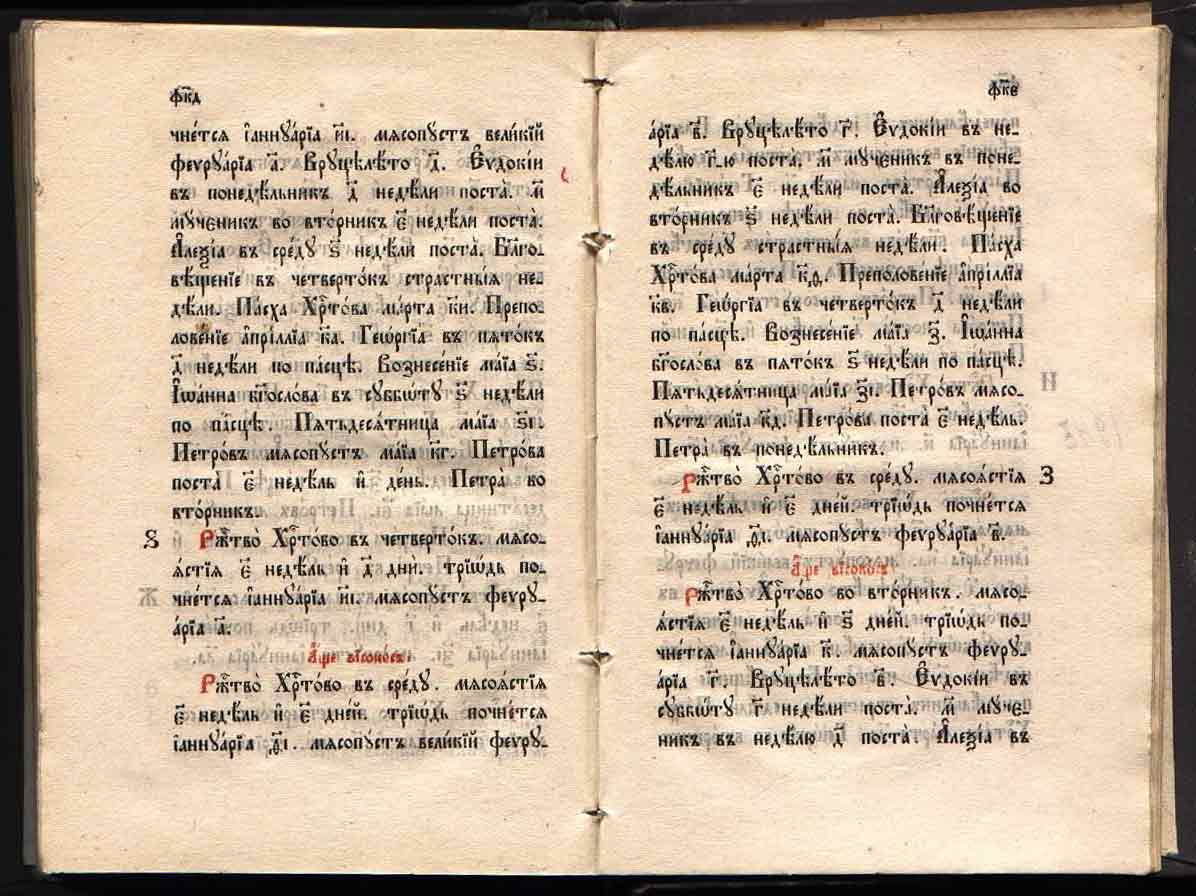 фк҃д
чне́тся і҆аннꙋа́рїа и҃і. мѧсопꙋ́стъ вели́кїй
феврꙋа́рїа а҃. Врꙋцѣлѣ́то д҃. Є҆ѵдокі́и
въ понедѣ́льникъ д҃ недѣ́ли поста̀. м҃
мꙋ́ченикъ во вто́рникъ є҃ недѣ́ли поста̀.
А҆леѯі́а въ сре́дꙋ ѕ҃ недѣ́ли поста̀. Бл҃го-
вѣ́щенїе въ четверто́къ страстны́ѧ не-
дѣ́ли. Па́сха Хрⷭ҇то́ва ма́рта к҃и. Препо-
лове́нїе а҆прі́ллїа к҃а. Геѡ́ргїа въ пѧто́къ
д҃ недѣ́ли по па́сцѣ. Вознесе́нїе ма́їа ѕ҃.
І҆ѡа́нна бг҃осло́ва въ сꙋббѡ́тꙋ ѕ҃ недѣ́ли
по па́сцѣ. Пѧтьдесѧ́тница ма́їа ѕ҃і.
Петро́въ мѧсопꙋ́стъ ма́їа к҃г. Петро́ва
поста̀ є҃ недѣ́ль и҆ де́нь. Петра̀ во
вто́рникъ.
ѕ Ржⷭ҇тво̀ Хрⷭ҇то́во въ четверто́къ. мѧсо-
ꙗ́стїѧ є҃ недѣ́ль и҆ д҃ дни̑. трїѡ́дь по-
чне́тся і҆аннꙋа́рїа и҃і. мѧсопꙋ́стъ феврꙋ-
а́рїа а҃.
а҆́ще високо́съ
Ржⷭ҇тво̀ Хрⷭ҇то́во въ сре́дꙋ. мѧсоꙗ́стїѧ
є҃ недѣ́ль и҆ є҃ дне́й. трїѡ́дь почне́тся
і҆аннꙋа́рїа ѳ҃і. мѧсопꙋ́стъ вели́кїй феврꙋ-
фк҃е
а́рїа в҃. Врꙋцѣлѣ́то г҃. Є҆ѵдокі́и въ не-
дѣ́лю г҃-ю поста̀. м҃ мꙋ́ченикъ въ поне-
дѣ́льникъ є҃ недѣ́ли поста̀. А҆леѯі́а во
вто́рникъ ѕ҃ недѣ́ли поста̀. Бл҃говѣ́щенїе
въ сре́дꙋ страстны́ѧ недѣ́ли. Па́сха
Хрⷭ҇то́ва ма́рта к҃ѳ. Преполове́нїе а҆прі́ллїа
к҃в. Геѡ́ргїа въ четверто́къ д҃ недѣ́ли
по па́сцѣ. Вознесе́нїе ма́їа з҃. І҆ѡа́нна
бг҃осло́ва въ пѧто́къ ѕ҃ недѣ́ли по па́сцѣ.
Пѧтьдесѧ́тница ма́їа з҃і. Петро́въ мѧсо-
пꙋ́стъ ма́їа к҃д. Петро́ва поста̀ є҃ недѣ́ль.
Петра̀ въ понедѣ́льникъ.
Ржⷭ҇тво̀ Хрⷭ҇то́во въ сре́дꙋ. мѧсоꙗ́стїѧ з
є҃ недѣ́ль и҆ є҃ дне́й. трїѡ́дь почне́тся
і҆аннꙋа́рїа ѳ҃і. мѧсопꙋ́стъ феврꙋа́рїа в҃.
а҆́ще високо́съ
Ржⷭ҇тво̀ Хрⷭ҇то́во во вто́рникъ. мѧсо-
ꙗ́стїѧ є҃ недѣ́ль и҆ ѕ҃ дне́й. трїѡ́дь по-
чне́тся і҆аннꙋа́рїа к҃. мѧсопꙋ́стъ феврꙋ-
а́рїа г҃. Врꙋцѣлѣ́то в҃. Є҆ѵдокі́и въ
сꙋббѡ́тꙋ г҃ недѣ́ли поста̀. м҃ мꙋ́че-
никъ въ недѣ́лю д҃ поста̀. А҆леѯі́а въ